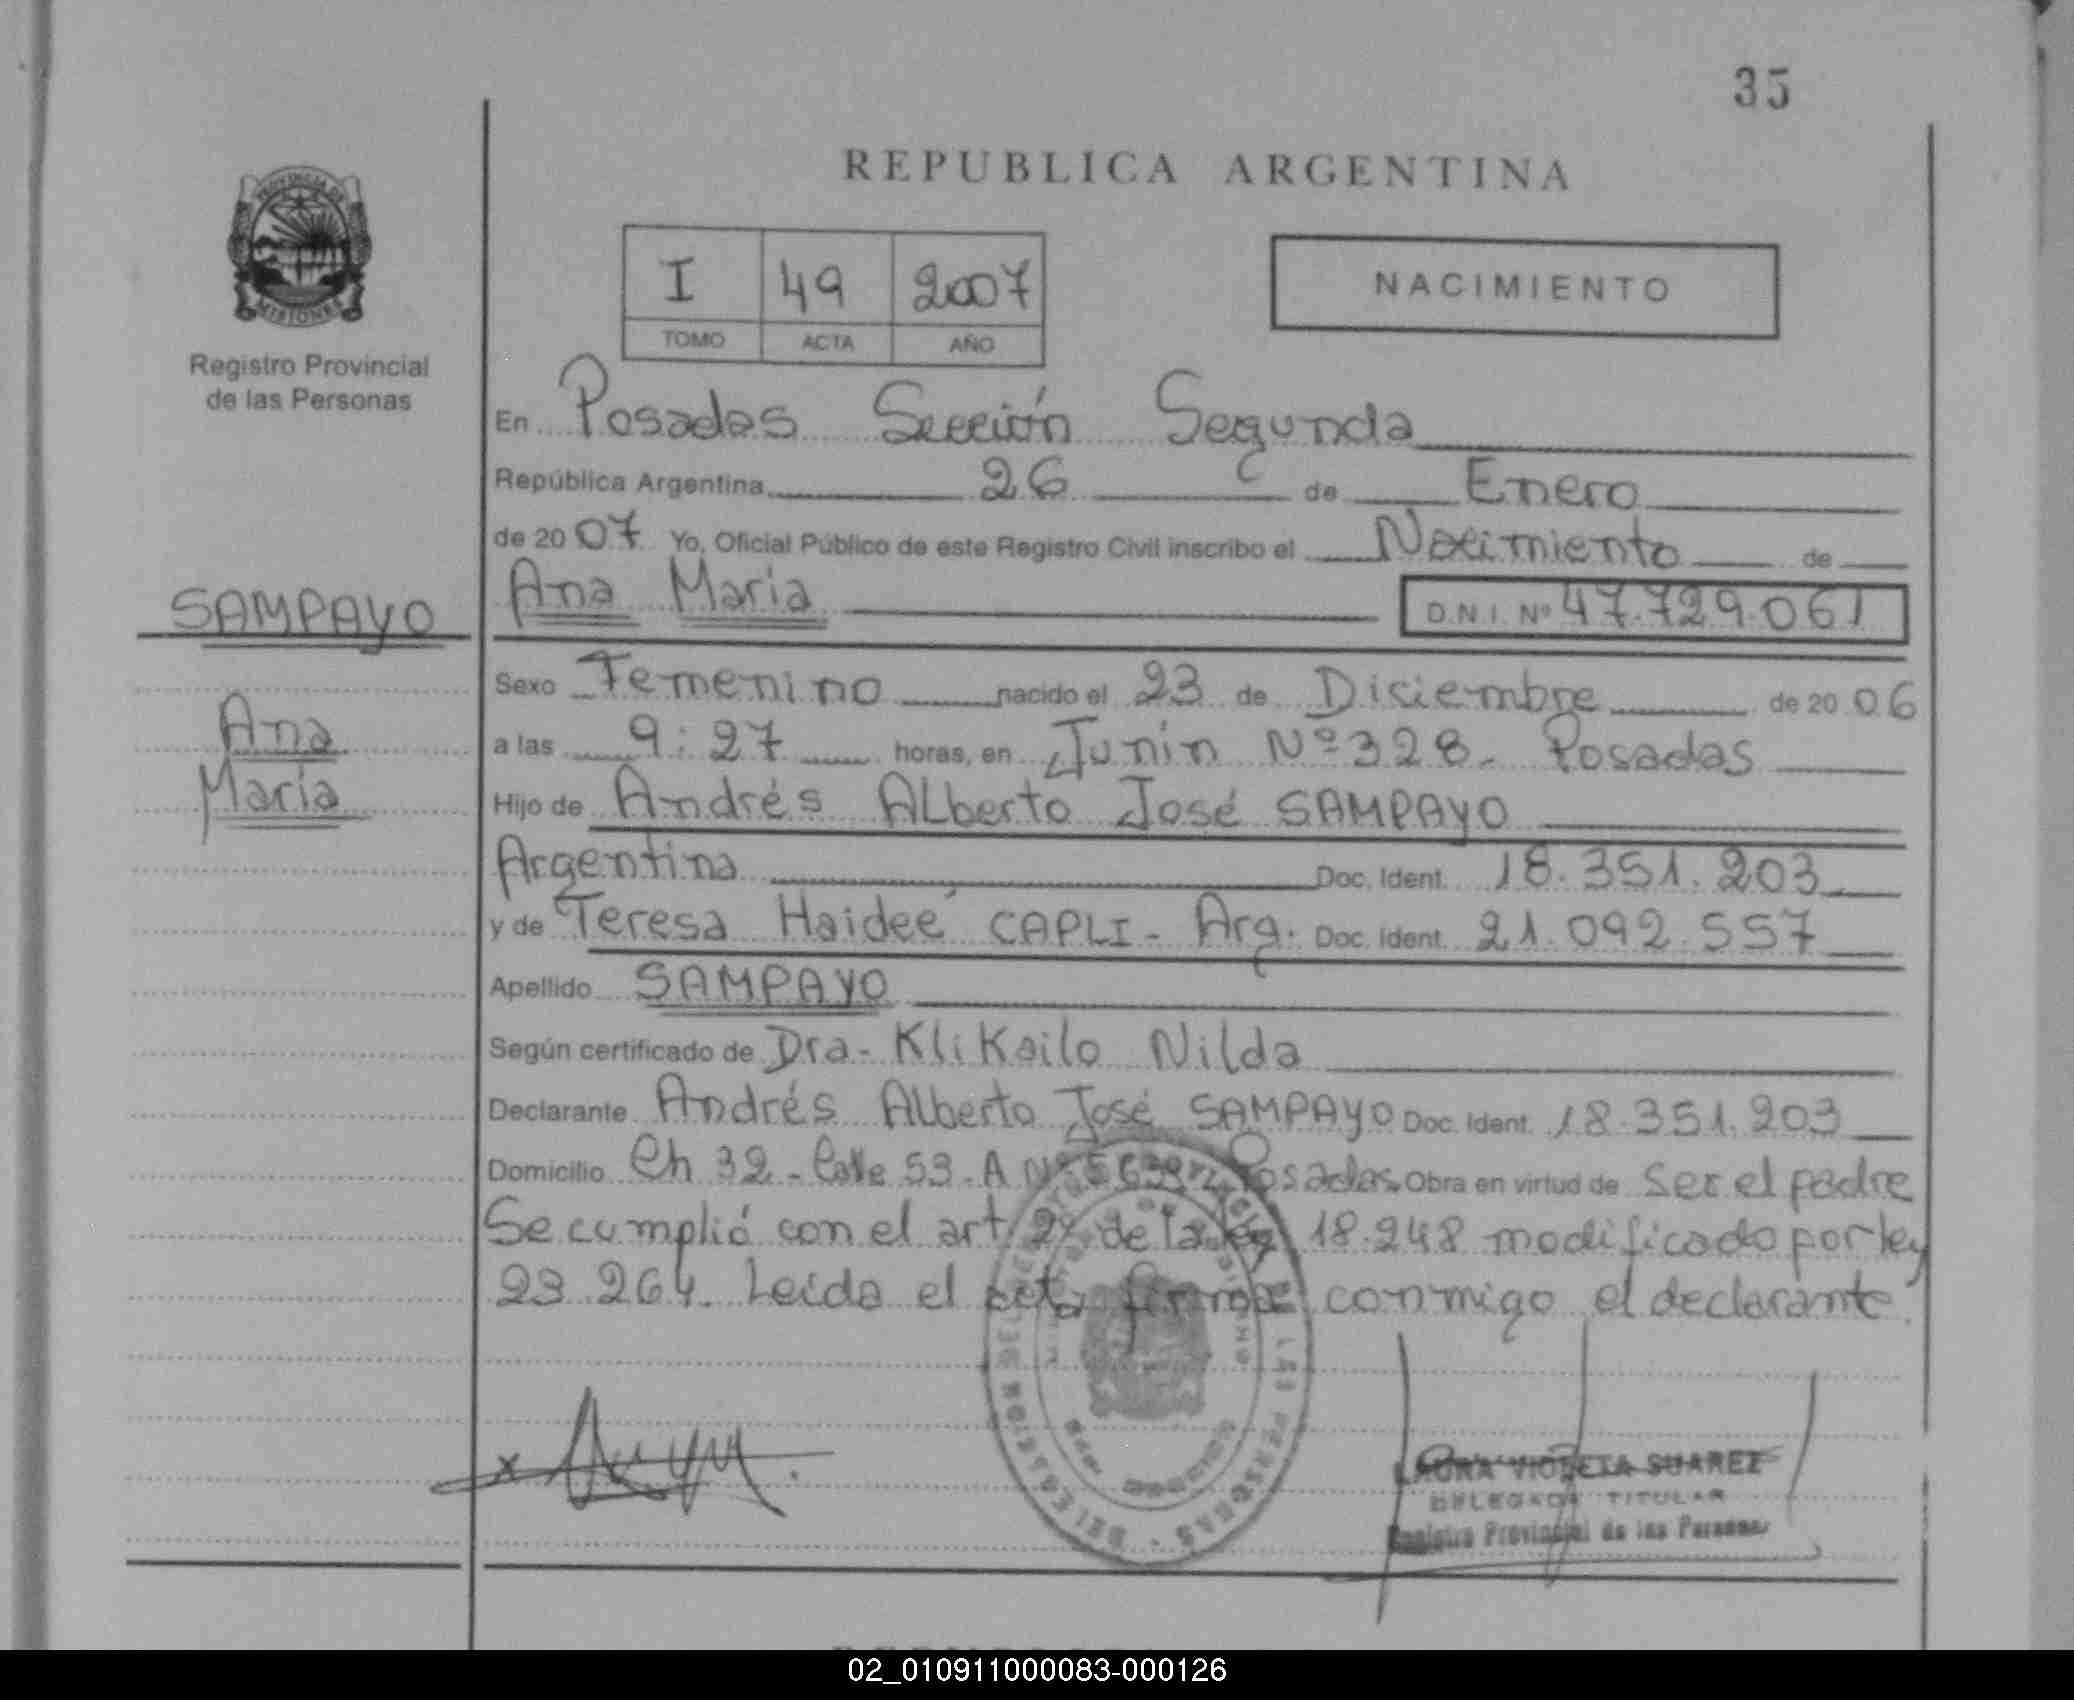 35
REPUBLICA ARGENTINA
PROVINCIA DE
MISIONES
Registro Provincial
de las Personas
I 49 2007
TOMO ACTA AÑO
NACIMIENTO
En Posadas Sección Segunda
República Argentina 26 de Enero
de 2007 Yo, Oficial Público de este Registro Civil inscribo el Nacimiento de
Ana María D.N.I. Nº 47.729.061
SAMPAYO
Ana
María
Sexo Femenino nacido el 23 de Diciembre de 2006
a las 9:27 horas, en Junín Nº 328- Posadas
Hijo de Andrés Alberto José SAMPAYO
Argentina Doc. Ident. 18.351.203
y de Teresa Haideé CAPLI - Arg. Doc. Ident. 21.092.557
Apellido SAMPAYO
Según certificado de Dra- KliKailo Nilda
Declarante Andrés Alberto José SAMPAYO Doc. Ident. 18.351.203
Domicilio Ch 32 - Calle 53-A Posadas. Obra en virtud de Ser el padre
Se cumplió con el art 2º de la ley 18.248 modificado por ley
23.264. Leída el acta firma conmigo el declarante.
LAURA VIOLETA SUAREZ
DELEGADA TITULAR
Registro Provincial de las Personas
02_010911000083-000126